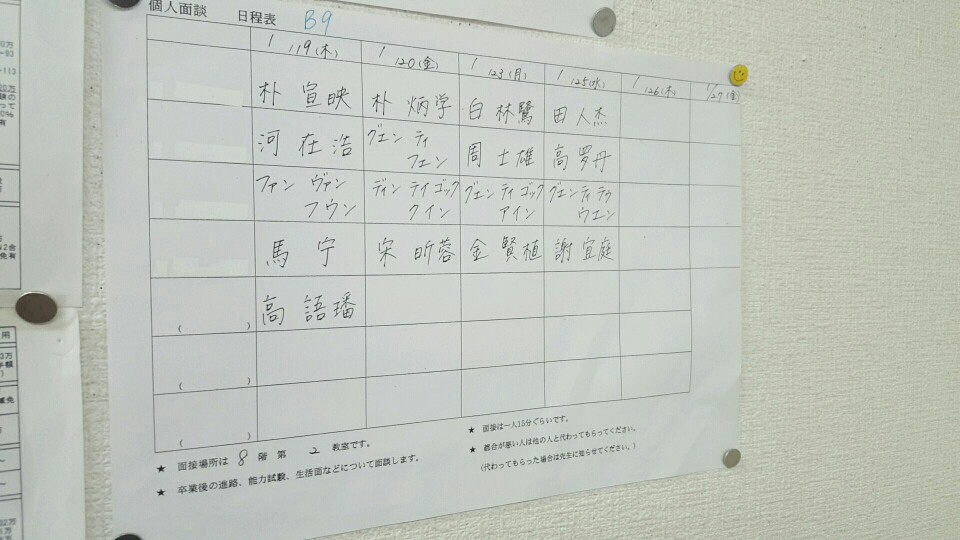 個人面談 日程表 B9
1/19(木) 1/20(金) 1/23(月) 1/25(水) 1/26(木) 1/27(金)
朴 宣映 朴 炳学 白 林鷺 田 人杰
河 在浩 グエン ティ フェン 周 士雄 高 罗丹
ファン ヴァン フウン ディン テイ ゴック クイン グエン ティ ゴック アイン グエン ティ テゥ ウエン
馬 宁 宋 昕蓉 金 賢植 謝 宜庭
高 語璠
( )
( )
( )
★ 面接場所は 8 階 第 2 教室です。
★ 卒業後の進路、能力試験、生活面などについて面談します。
★ 面接は一人15分ぐらいです。
★ 都合が悪い人は他の人と代わってもらってください。
(代わってもらった場合は先生に知らせてください。)